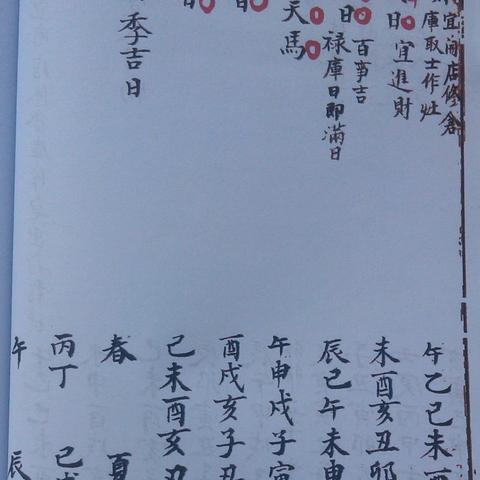 宜開店修倉
庫取士作灶
日宜進財
百事吉
日
祿庫日即滿日
天馬
日
日
季吉日
午乙巳未酉
未酉亥丑卯
辰巳午未申
午申戌子寅
酉戌亥子丑
巳未酉亥丑
春 夏
丙丁
午 辰